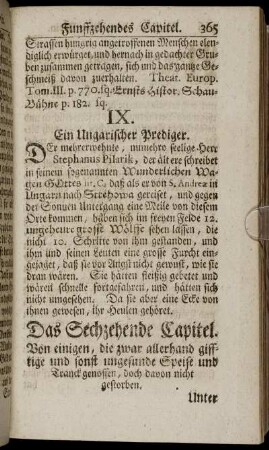 Funffzehendes Capitel. 365
Strassen hungrig angetroffenen Menschen elen-
diglich erwürget, und hernach in gedachter Gru-
ben zusammen getragen, sich und das gantze Ge-
schmeiß davon zuerhalten. Theat. Europ.
Tom. III. p. 770. sq. Ernsts Histor. Schau-
Bühne p. 182. sq.
IX.
Ein Ungarischer Prediger.
DEr mehrerwehnte, nunmehro seelige Herr
Stephanus Pilarik, der ältere schreibet
in seinem sogenannten Wunderlichen Wa-
gen GOttes daß als er von S. Andreæ in
Ungarn nach gereiset, und gegen
der Sonnen Untergang eine Meile von diesem
Orte kommen, haben sich im freyen Felde 12.
ungeheur grosse Wölffe sehen lassen, die
nicht 10. Schritte von ihm gestanden, und
ihm und seinen Leuten eine grosse Furcht ein-
gejaget, daß sie vor Angst nicht gewust, wie sie
dran wären. Sie hätten fleißig gebetet und
wären schnelle fortgefahren, und hätten sich
nicht umgesehen. Da sie aber eine Ecke von
ihnen gewesen, ihr Heulen gehöret.
Das Sechzehende Capitel.
Von einigen, die zwar allerhand giff-
tige und sonst ungesunde Speise und
Tranck genossen, doch davon nicht
gestorben.
Unter